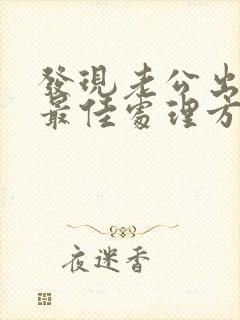 發現老公出
最佳處理方
夜迷香